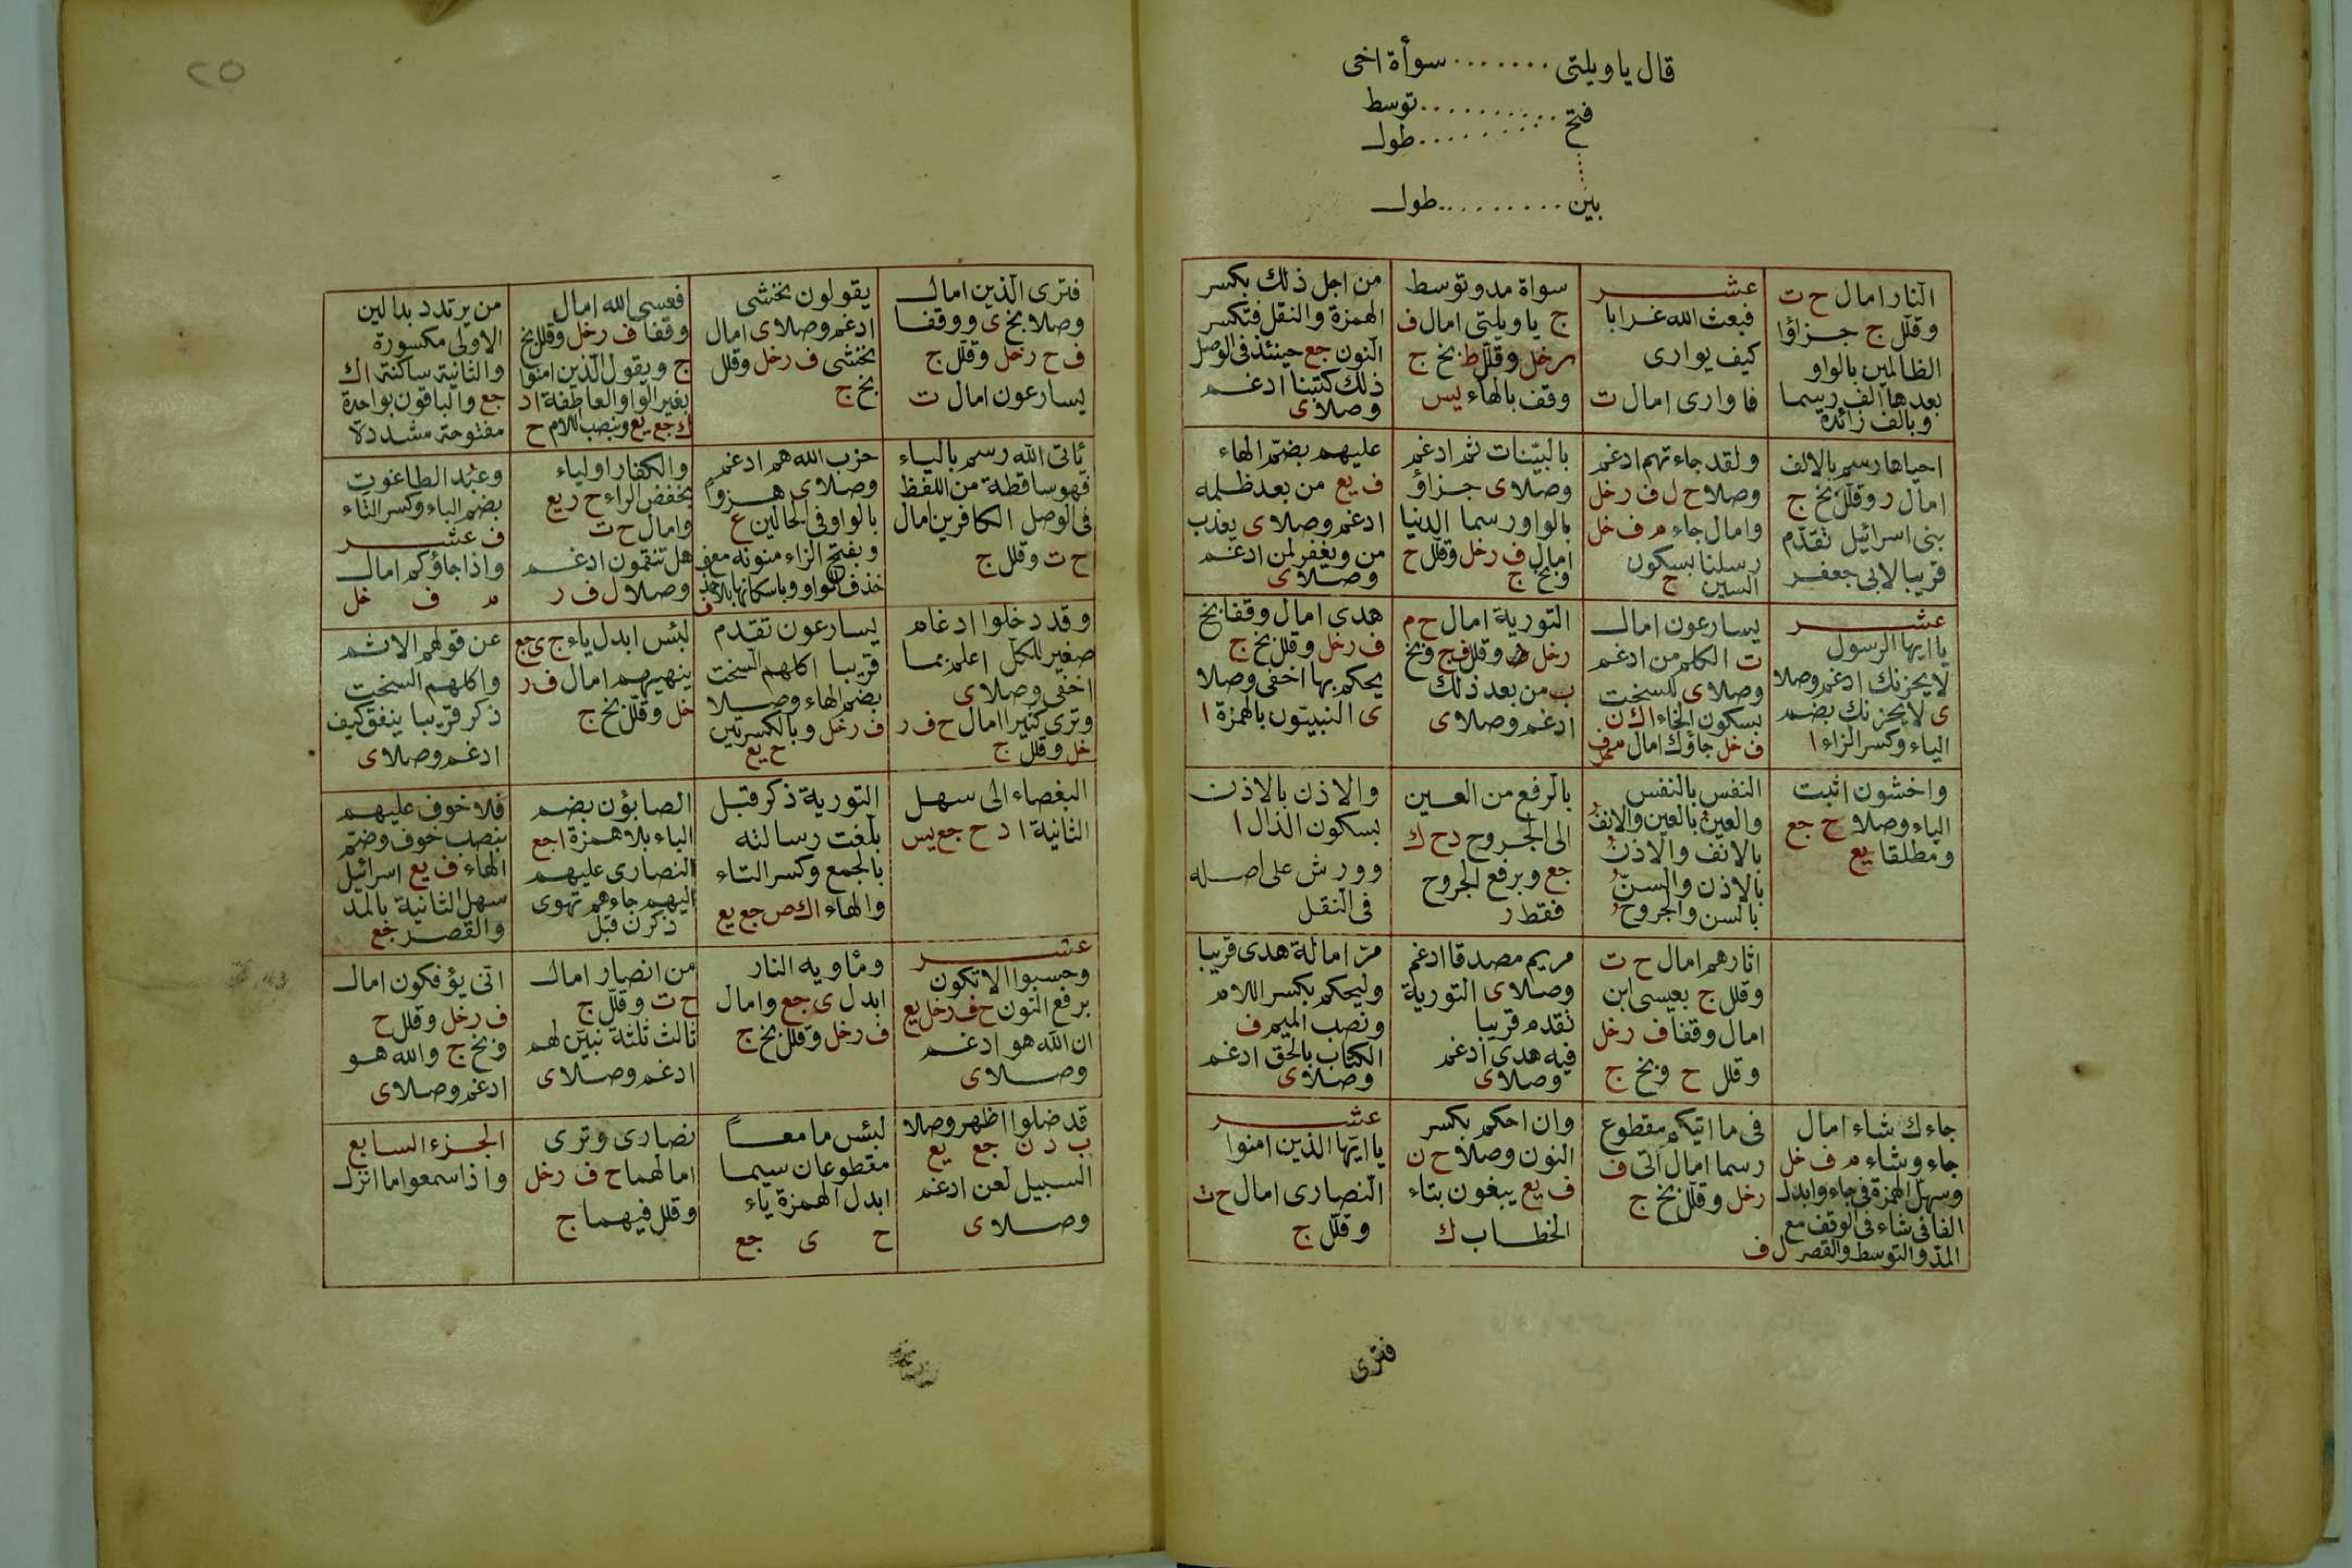 قال ياويلتى ....... سوأة اخى
فتح .......... توسط
......... طول
بين ......... طول
النار امال ح ت
وقلل ج جزاؤا
الظالمين بالواو
بعدها الف رسما
وبالف زائدة
عشر
فبعث الله غرابا
كيف يوارى
فاوارى امال ت
سواة مد وتوسط
ج ياويلتى امال ف
رخل وقلل ط بخ ج
وقف بالهاء يس
من اجل ذلك بكسر
الهمزة والنقل فتكسر
النون جع حينئذ فى الوصل
ذلك كتبنا ادغم
وصلا ى
احياها رسم بالالف
امال ر وقلل بخ ج
بنى اسرائيل تقدم
قريبا لابى جعفر
ولقد جاءتهم ادغم
وصلا ح ل ف رخل
وامال جاء م ف خل
رسلنا بسكون
السين ح
بالبينات ثم ادغم
وصلا ى جزاؤ
بالواو رسما الدنيا
امال ف رخل وقلل ح
وبخ ج
عليهم بضم الهاء
ف يع من بعد ظلمه
ادغم وصلا ى يعذب
من ويغفر لمن ادغم
وصلا ى
عشر
ياايها الرسول
لا يحزنك ادغم وصلا
ى لا يحزنك بضم
الياء وكسر الزاء ا
يسارعون امال
ت الكلم من ادغم
وصلا ى للسحت
بسكون الحاء اك ن
ف خل جاؤك امال م ف خل
التورية امال ح م
رخل وقلل ف ج وبخ
ب من بعد ذلك
ادغم وصلا ى
هدى امال وقفا بخ
ف رخل وقلل بخ ج
يحكم بها اخفى وصلا
ى النبيون بالهمزة ا
واخشون اثبت
الياء وصلا ح جع
ومطلقا يع
النفس بالنفس
والعين بالعين والانف
بالانف والاذن
بالاذن والسن
بالسن والجروح
بالرفع من العين
الى الجروح د ح ك
جع وبرفع الجروح
فقط ر
والاذن بالاذن
بسكون الذال ا
وورش على اصله
فى النقل
اثارهم امال ح ت
وقلل ج بعيسى ابن
امال وقفا ف رخل
وقلل ح وبخ ج
مريم مصدقا ادغم
وصلا ى التورية
تقدم قريبا
فيه هدى ادغم
وصلا ى
مر امالة هدى قريبا
وليحكم بكسر اللام
ونصب الميم ف
الكتاب بالحق ادغم
وصلا ى
جاءك شاء امال
جاء وشاء م ف خل
وسهل الهمزة فى جاء وابدل
الفا فى شاء فى الوقف مع
المد والتوسط والقصر ل ف
فى ما اتيكم مقطوع
رسما امال اتى ف
رخل وقلل بخ ج
وان احكم بكسر
النون وصلا ح ن
ف يع يبغون بتاء
الخطاب ك
عشر
ياايها الذين امنوا
النصارى امال ح ت
وقلل ج
فترى
٢٥
فترى الذين امال
وصلا بخ ى ووقفا
ف ح رخل وقلل ج
يسارعون امال ت
يقولون نخشى
ادغم وصلا ى امال
نخشى ف رخل وقلل
بخ ج
فعسى الله امال
وقفا ف رخل وقلل بخ
ج ويقول الذين امنوا
بغير الواو العاطفة ا د
ك جع يع وبنصب اللام ح
من يرتدد بدالين
الاولى مكسورة
والثانية ساكنة اك
جع والباقون بواحدة
مفتوحة مشددة
ياتى الله رسم بالياء
فهو ساقطة من اللفظ
فى الوصل الكافرين امال
ح ت وقلل ج
حزب الله هم ادغم
وصلا ى هزوا
بالواو فى الحالين ع
وبفتح الزاء منونة مع
حذف الواو وباسكانها
والكفار اولياء
بخفض الراء ح ر يع
وامال ح ت
هل تنقمون ادغم
وصلا ل ف ر
وعبد الطاغوت
بضم الباء وكسر التاء
ف عشر
واذا جاؤكم امال
م ف خل
وقد دخلوا ادغام
صغير للكل اعلم بما
اخفى وصلا ى
وترى كثيرا امال ح ف ر
خل وقلل ج
يسارعون تقدم
قريبا اكلهم السحت
بضم الهاء وصلا
ف رخل وبالكسرتين
ح يع
لبئس ابدل ياء ج ى جع
ينهيهم امال ف ر
خل وقلل بخ ج
عن قولهم الاثم
واكلهم السحت
ذكر قريبا ينفق كيف
ادغم وصلا ى
البغضاء الى سهل
الثانية ا د ح جع يس
التورية ذكر قبل
بلغت رسالته
بالجمع وكسر التاء
والهاء اك ص جع يع
الصابؤن بضم
الباء بلا همزة ا جع
النصارى عليهم
اليهم جاءهم تهوى
ذكرن قبل
فلا خوف عليهم
بنصب خوف وضم
الهاء ف يع اسرائيل
سهل الثانية بالمد
والقصر جع
عشر
وحسبوا الا تكون
برفع النون ح ف رخل يع
ان الله هو ادغم
وصلا ى
ومأويه النار
ابدل ى جع وامال
ف رخل وقلل بخ ج
من انصار امال
ح ت وقلل ج
ثالث ثلثة نبين لهم
ادغم وصلا ى
انى يؤفكون امال
ف رخل وقلل ح
وبخ ج والله هو
ادغم وصلا ى
قد ضلوا اظهر وصلا
ب د ن جع يع
السبيل لعن ادغم
وصلا ى
لبئس ما معا
مقطوعان سيما
ابدل الهمزة ياء
ح ى جع
نصارى وترى
امالهما ح ف رخل
وقلل فيهما ج
الجزء السابع
واذا سمعوا ما انزل